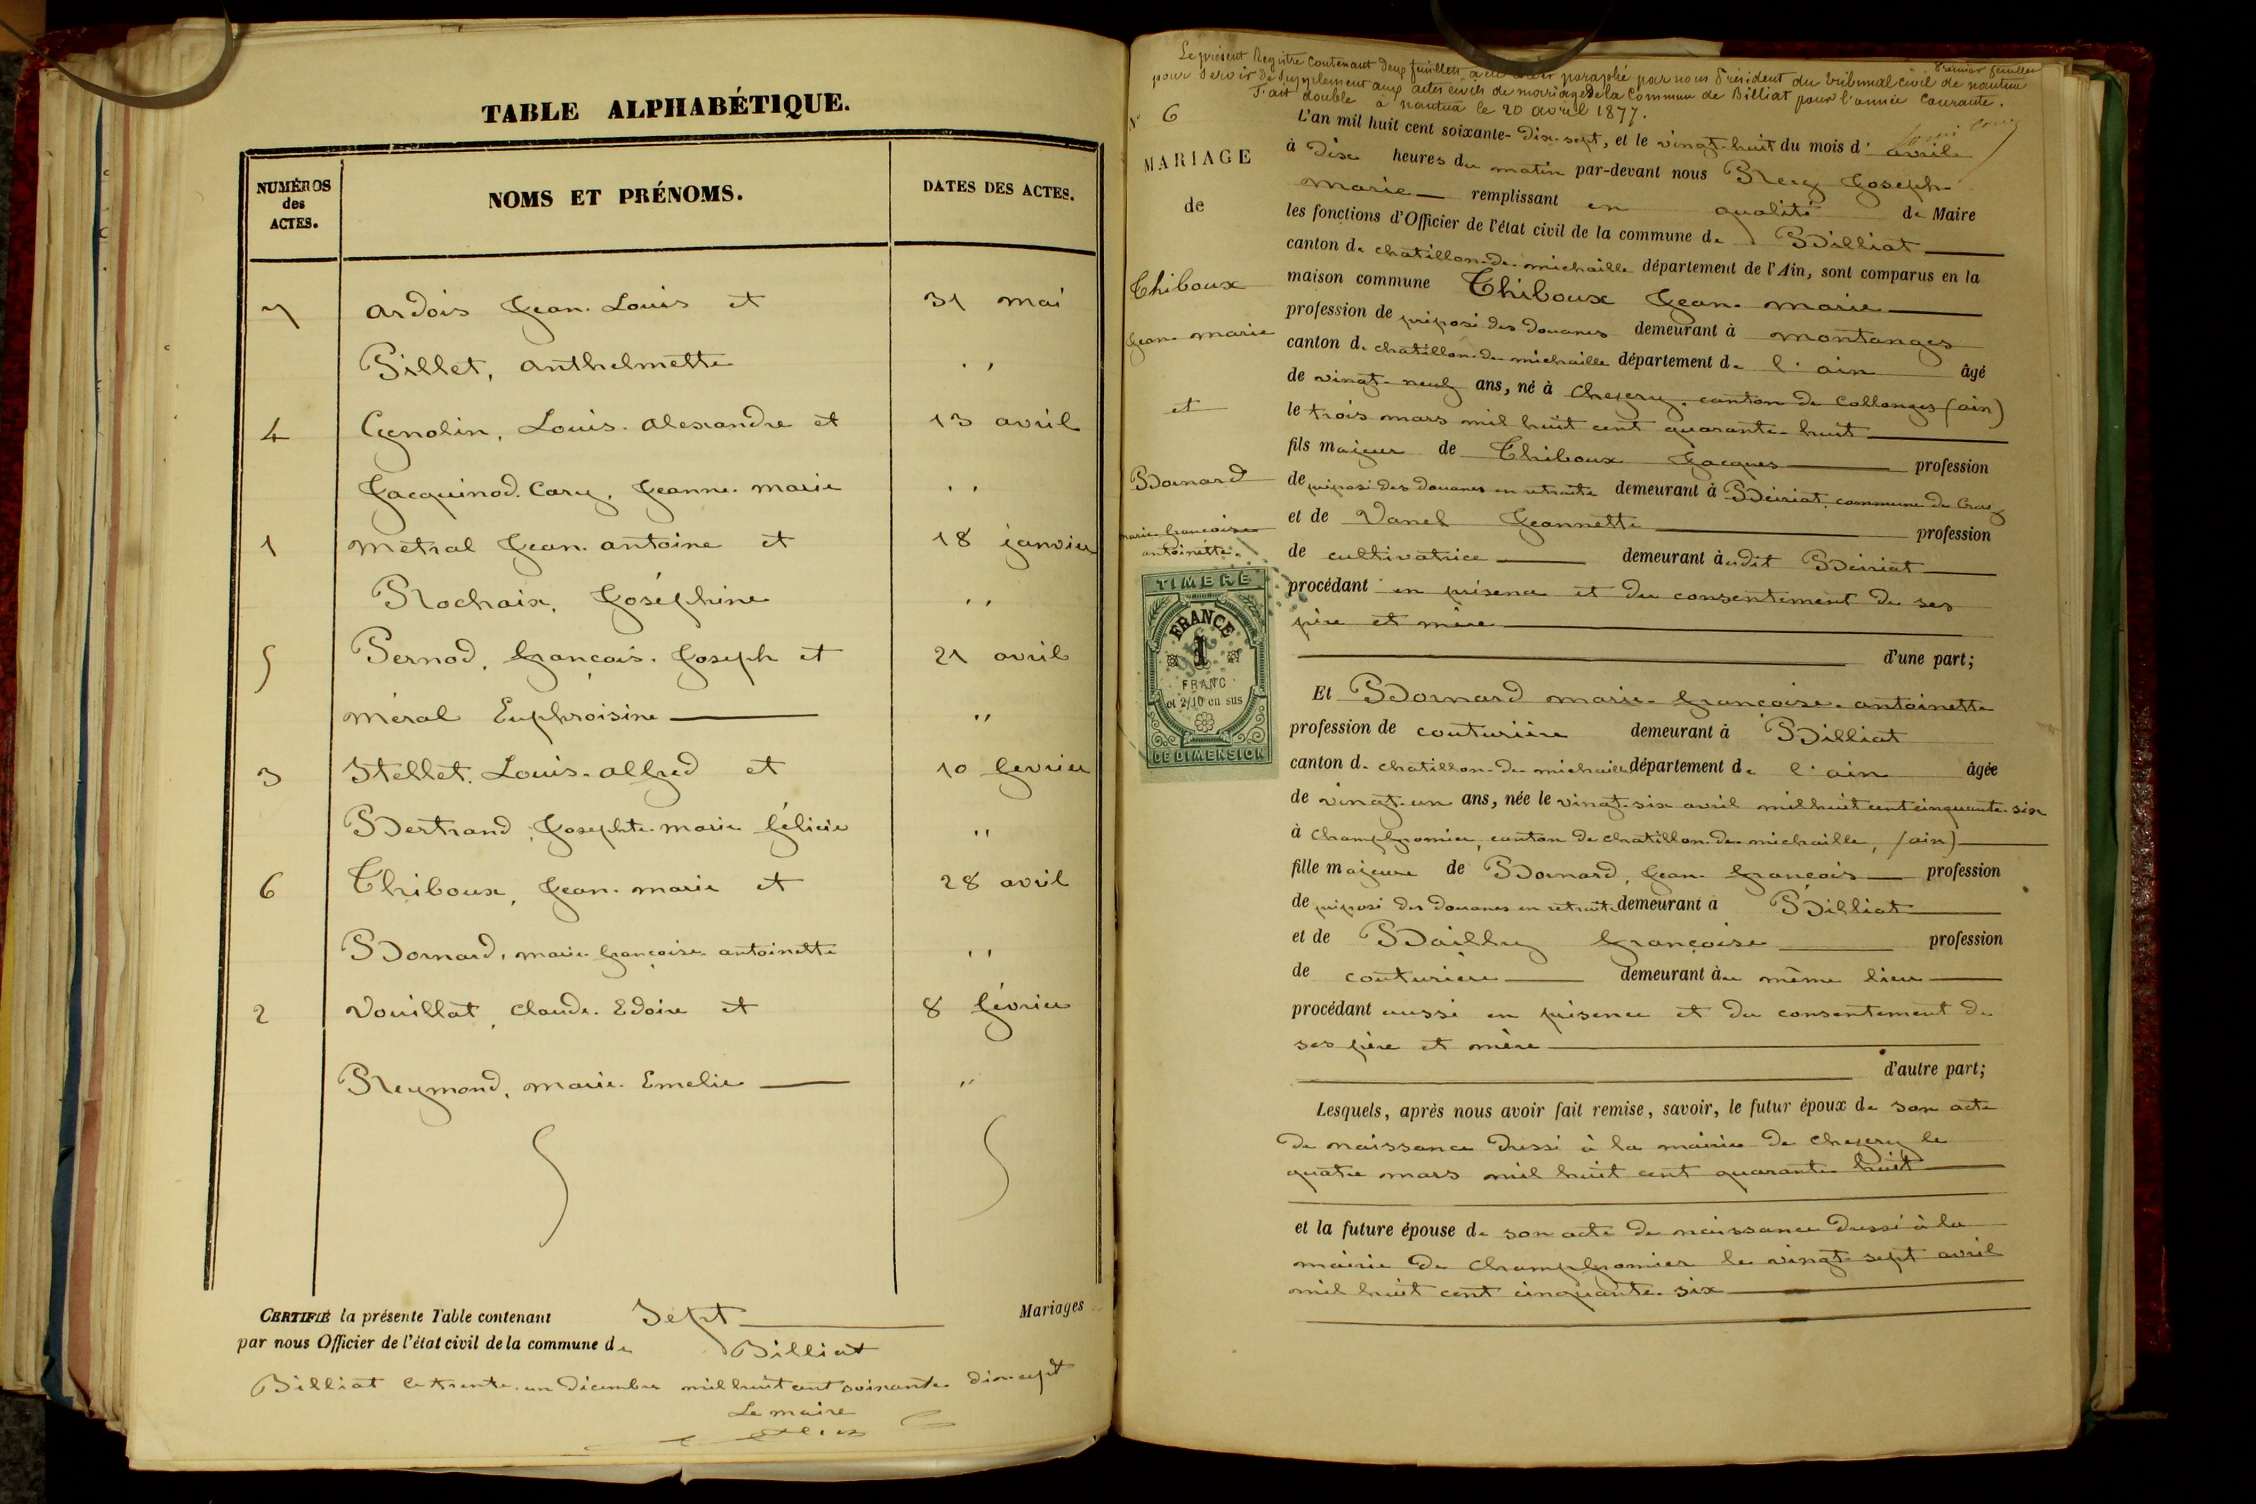 TABLE ALPHABÉTIQUE.
NUMÉROS des ACTES.
NOMS ET PRÉNOMS.
DATES DES ACTES.
7 Ardois Jean. Louis et 31 mai
Pillet, Anthelmette "
4 Genolin, Louis. Alexandre et 13 avril
Jacquinod. Cary, Jeanne. Marie "
1 Metral Jean. Antoine et 18 janvier
Rochaix, Joséphine "
5 Pernod, François. Joseph et 21 avril
Méral Euphroisine "
3 Stellet, Louis. Alfred et 10 fevrier
Bertrand, Josephte. Marie Félicie "
6 Thiboux, Jean. Marie et 28 avril
Bornard, Marie Françoise Antoinette "
2 Vouillat, Claude. Edoire et 8 février
Reymond, Marie. Emelie "
CERTIFIÉ la présente Table contenant Sept Mariages
par nous Officier de l'état civil de la commune de Billiat
Billiat le trente. un Décembre mil huit cent soixante dix-sept
Le maire
Le présent Registre contenant deux feuillets a été paraphé par nous Président du tribunal civil de nantua
premier feuillet
pour servir de Supplément aux actes civils de mariages de la Commune de Billiat pour l'année Courante.
Fait double à nantua le 20 avril 1877.
N° 6
MARIAGE
de
Thiboux
Jean. Marie
et
Bornard
Marie Françoise
Antoinette.
TIMBRE
FRANCE
1
FRANC
et 2/10 en sus
DE DIMENSION
L'an mil huit cent soixante- dix. sept, et le vingt. huit du mois d' avril
à dix heures du matin par-devant nous Rey Joseph
Marie remplissant en qualité de Maire
les fonctions d'Officier de l'état civil de la commune de Billiat
canton de chatillon. de. michaille département de l'Ain, sont comparus en la
maison commune Thiboux Jean. Marie
profession de préposé des Douanes demeurant à Montanges
canton de chatillon. de michaille département de l'ain âgé
de vingt. neuf ans, né à Chezery, canton de Collonges (ain)
le trois mars mil huit cent quarante. huit
fils majeur de Thiboux Jacques profession
de préposé des Douanes en retraite demeurant à Beiriat, commune de Craz
et de Vanel Jeannette profession
de cultivatrice demeurant audit Beiriat
procédant en présence et du consentement de ses
père et mère
d'une part;
Et Bornard Marie. Françoise. Antoinette
profession de couturière demeurant à Billiat
canton de chatillon. de michaille département de l'ain âgée
de vingt. un ans, née le vingt. six avril mil huit cent cinquante. six
à Champfromier, canton de chatillon. de. michaille, (ain)
fille majeure de Bornard, Jean. François profession
de préposé des Douanes en retraite demeurant à Billiat
et de Bailly Françoise profession
de couturière demeurant au même lieu
procédant aussi en présence et du consentement de
ses père et mère
d'autre part;
Lesquels, après nous avoir fait remise, savoir, le futur époux de son acte
de naissance dressé à la mairie de Chezery le
quatre mars mil huit cent quarante huit
et la future épouse de son acte de naissance dressé à la
mairie de Champfromier le vingt sept avril
mil huit cent cinquante. six